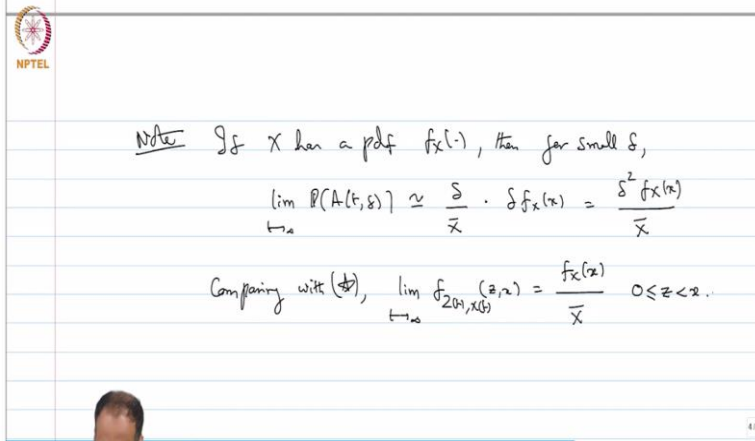 NPTEL
Note If X has a pdf fx(·), then for small δ,
lim P(A(t,δ)) ≃ δ/x̄ · δ fx(x) = δ² fx(x)/x̄
t→∞
Comparing with (☆), lim f_{Z(t),X(t)}(z,x) = fx(x)/x̄ 0≤z<x.
t→∞